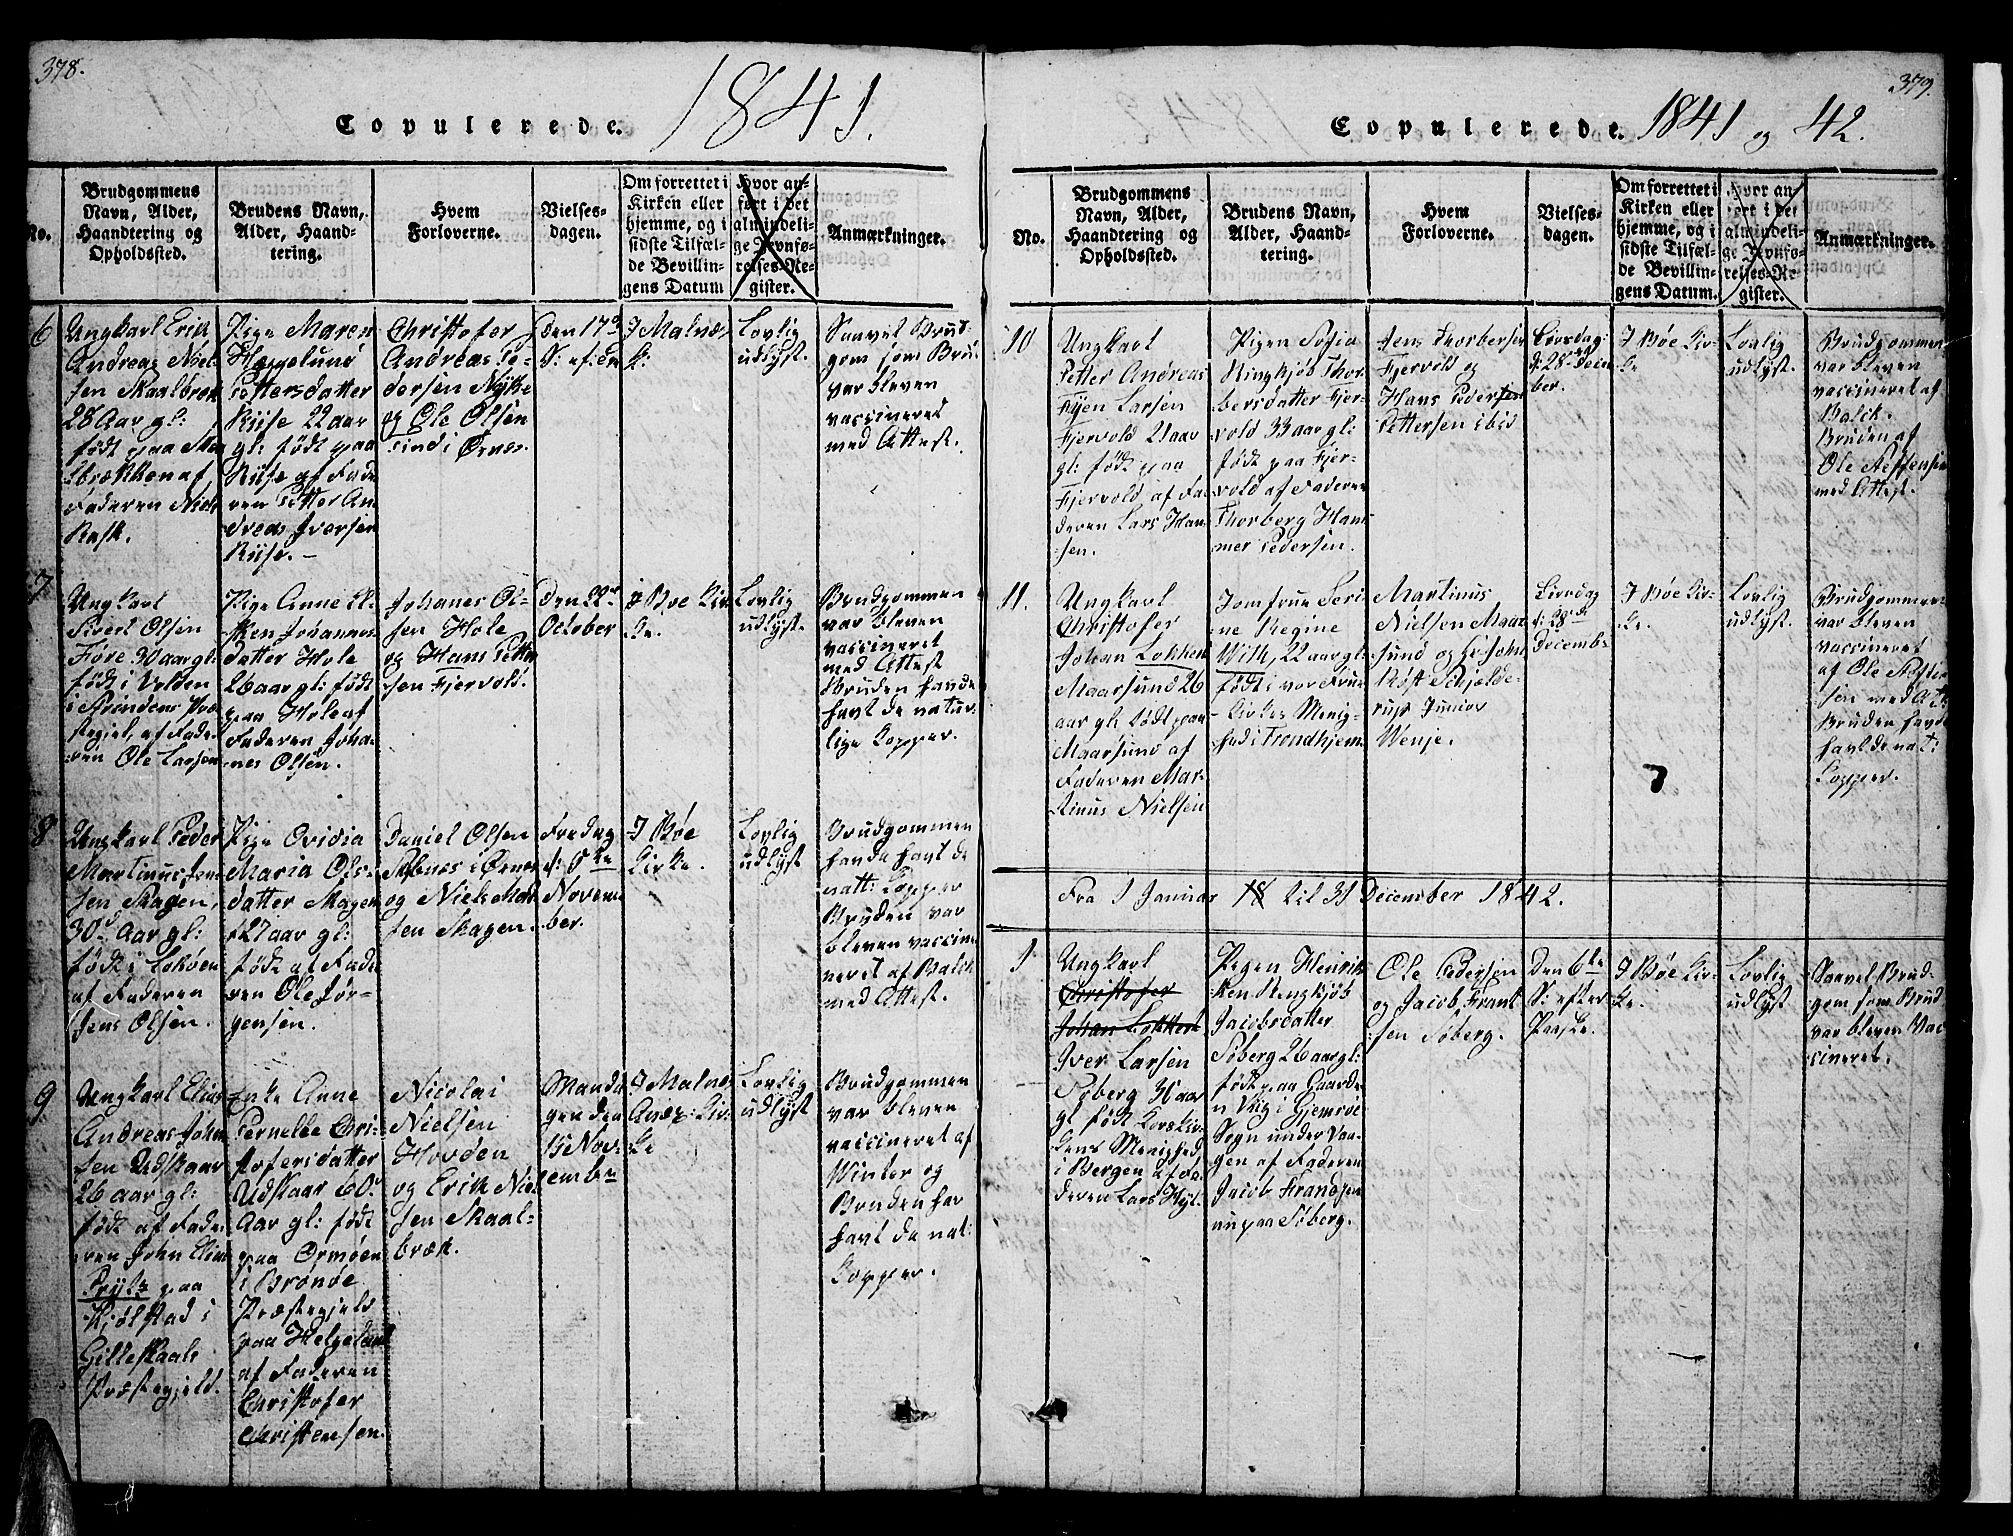 378.
Copulerede. 1841.
No.
Brudgommens
Navn, Alder,
Haandtering og
Opholdssted.
Brudens Navn,
Alder, Haand-
tering.
Hvem
Forloverne.
Vielses-
dagen.
Om forrettet i
Kirken eller
hjemme, og i
sidste Tilfæl-
de Bevillin-
gens Datum
Hvor an-
ført i det
almindeli-
ge Jevnfø-
relses-Re-
gister.
Anmærkninger.
6
Ungkarl Erik
Andreas Niel-
sen Skaalbræk
28 Aar gl:
født paa
af
Faderen Niels
Rask.
Pige Maren
Hæggelund
Pettersdatter
Riise 22 aar
gl: født paa
Riise af Fade
ren Petter An
dreas Iversen
Riise. –
Christofer
Andreas Pe-
dersen Nykke
og Ole Olsen
sind i Ørnes.
den 17de
S. ef: Tr
I Malnæs
K:
Lovlig
udlyst.
Saavel Brud-
gom som Brud
var bleven
vaccineret
med Attest.
7
Ungkarl
Sivert Olsen
Føre 30 aar gl:
født i Volden
i Præ-
stegjel, af Fade-
ren Ole Larsen
Pige Anne El-
sken Johannes
datter Hole
26 aar gl: født
paa Hole af
Faderen Joha-
nes Olsen.
Johanes Ol-
sen Hole
og Hans Petter
sen Fjervold.
Den 22de
October
I Bøe Kir
ke.
Lovlig
udlyst.
Brudgommen
var bleven
vaccineret
med Attest
Bruden havde
havt de natur-
lige Kopper.
8
Ungkarl Peder
Martinus Jen
sen Skagen,
30d Aar gl:
født i
af Faderen
Jens Olsen.
Pige Ovidia
Maria Ols-
datter Skagen
27 aar gl:
født af Fade
ren Ole Jør-
gensen.
Daniel Olsen
i Ørnes
og Niels Mat
sen Skagen.
Fredag
d: 5te
Novem-
ber.
I Bøe
Kirke.
Lovlig
udlyst
Brudgommen
havde havt de
natt: Kopper
Bruden var
bleven vacci-
neret af Balck
med Attest.
9
Ungkarl Elias
Andreas John
sen Udskaar
26 aar gl:
født af Fade
ren John Elias
Prytz paa
Kjølstad i
Gilleskaals
Præstegjeld.
Enke Anne
Pernelle Chri-
stofersdatter
Udskaar 60
Aar gl: født
paa Ormøen
i Brønøe
Præstegjeld
paa Helgeland
af Faderen
Christofer
Christensen.
Nicolai
Nielsen
Hovden
og Erik Niel
sen Skaal-
bræk.
Manda
gen den
15 Nov-
embr
I Malnes
Kir-
ke
Lovlig
udlyst
Brudgommen
var bleven
vaccineret af
Winter og
Bruden har
havt de nat:
Kopper.
379.
Copulerede. 1841 og 42.
No.
Brudgommens
Navn, Alder,
Haandtering og
Opholdssted.
Brudens Navn,
Alder, Haand-
tering.
Hvem
Forloverne.
Vielses-
dagen.
Om forrettet i
Kirken eller
hjemme, og i
sidste Tilfæl-
de Bevillin-
gens Datum.
Hvor an
ført i det
almindeli-
ge Jevnfø-
relses-Re-
gister.
Anmærkninger.
10
Ungkarl
Petter Andreas
Fyen Larsen
Fjervold 21 aar
gl: født paa
Fjervold af Fa
deren Lars Han-
sen.
Pigen Sofia
Ringkjøb Thor-
bersdatter Fjer-
vold 33 aar gl:
født paa Fjer-
vold af Faderen
Thorberg Ham
mer Pedersen.
Jens Thorbersen
Fjervold og
Hans Pedersen
Pettersen ibid
Løvedag
d: 28de Decem
ber.
I Bøe Kir-
ke
Lovlig
udlyst.
Brudgommen
var bleven
vaccineret af
Balck.
Bruden af
Ole Steffensen
med Attest.
11.
Ungkarl
Christofer
Johan Lokkert
Maarsund 26
aar gl: født paa
Maarsund af
Faderen Mar-
tinus Nielsen
Jomfrue Seri-
ne Regine
With, 22 aar gl:
født i vor Frue
Kirkes Menig-
hed i Trondhjem
Martinus
Nielsen Maar
sund og Hr John
Røst Schjelde-
rup Junior
Wenje.
Løvedag
d: 28de
Decemb:
I Bøe Kir-
ke.
Lovlig
udlyst.
Brudgommen
var bleven
vaccineret
af Ole Steffen
sen med Att:
Bruden havde
havt de nat:
Kopper.
Fra 1 Januar 18 til 31 December 1842.
1.
Ungkarl
Christofer
Johan Lokkert
Iver Larsen
Søberg 30 aar
gl født Korskir-
kens Menighed
i Bergen af Fa-
deren Lars
Pigen Henrik-
ken Rengkjøb
Jacobsdatter
Søberg 26 aar gl:
født paa Gaarde
n Vig i Gjemsøe
Sogn under Vaa-
gen af Faderen
Jacob Frandsen
nu paa Søberg.
Ole Pedersen
og Jacob Frant
sen Søberg.
Den 6te
S: efter
Paaske.
I Bøe Kir-
ke.
Lovlig
udlyst.
Saavel Brud-
gom som Brud
var bleven Vac
cineret.